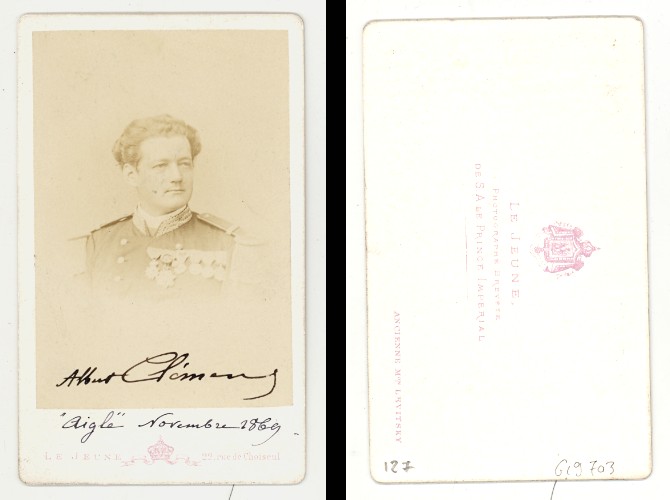 Albert Clémans
"Aigle" Novembre 1869.
LE JEUNE 22, rue de Choiseul
LE JEUNE,
PHOTOGRAPHE BREVETÉ
DE S.A. LE PRINCE IMPÉRIAL
ANCIENNE Mon LEVITSKY
127
G19703